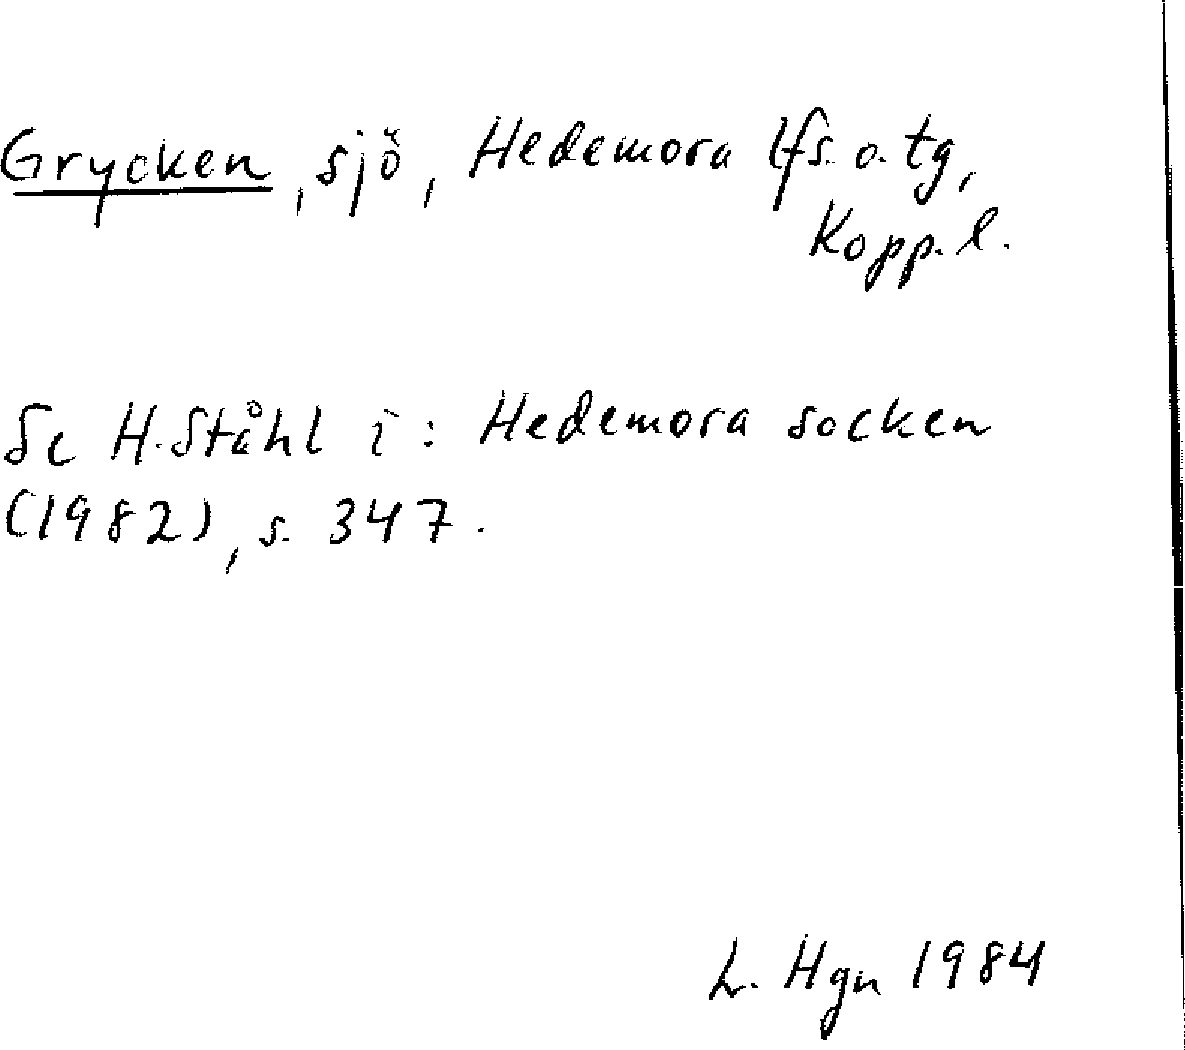 Grycken, sjö, Hedemora lfs. o. tg,
Kopp. l.
Se H. Ståhl i: Hedemora socken
(1982), s. 347.
L. Hgn 1984